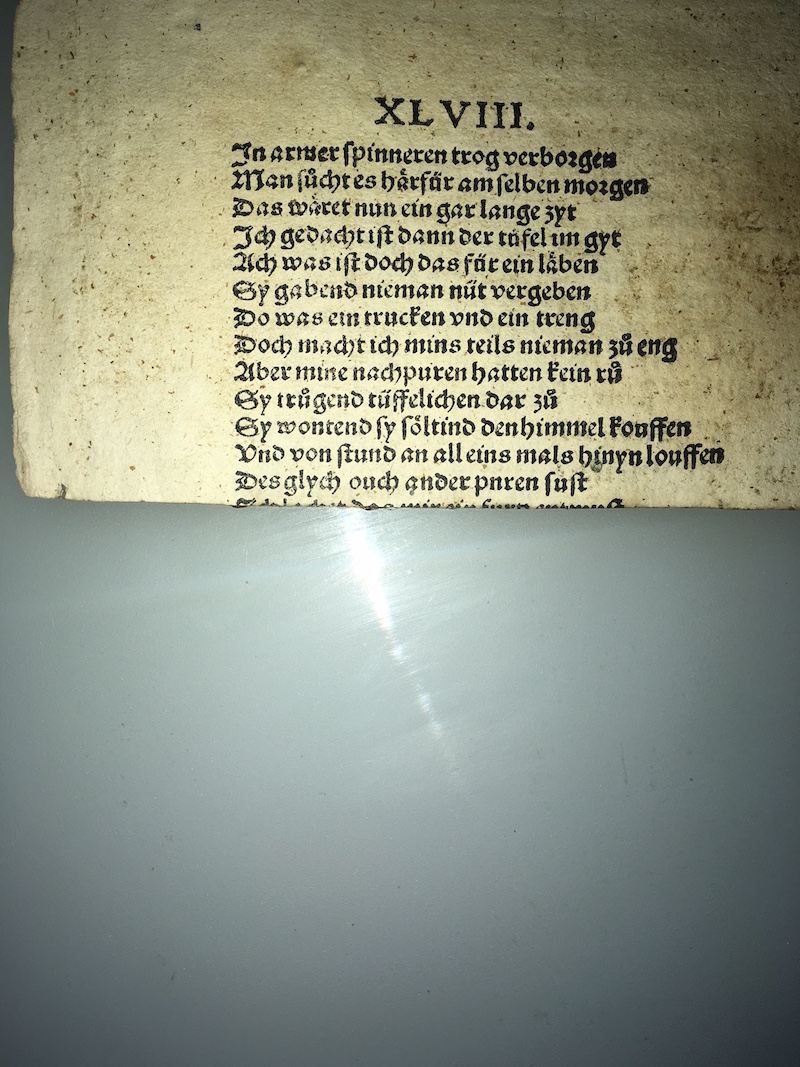 XLVIII.
In armer spinneren trog verborgen
Man sůcht es härfür am selben morgen
Das wäret nun ein gar lange zyt
Ich gedacht ist dann der tüfel im gyt
Ach was ist doch das für ein läben
Sy gabend nieman nüt vergeben
Do was ein trucken vnd ein treng
Doch macht ich mins teils nieman zů eng
Aber mine nachpuren hatten kein rů
Sy trůgend tüffelichen dar zů
Sy wontend sy söltind den himmel kouffen
Vnd von stund an all eins mals hinyn louffen
Des glych ouch ander puren sust